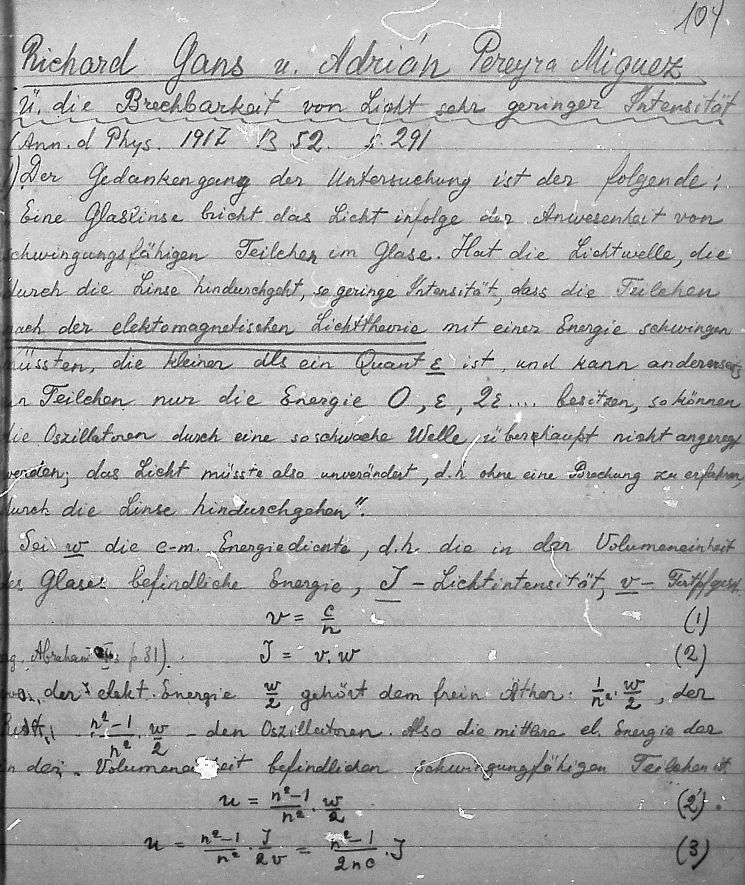 104
Richard Gans u. Adrián Pereyra Miguez
Ü. die Brechbarkeit von Licht sehr geringer Intensität
Ann. d Phys. 1917 B 52. s. 291
1) Der Gedankengang der Untersuchung ist der folgende:
"Eine Glaslinse bricht das Licht infolge der Anwesenheit von
schwingungsfähigen Teilchen im Glase. Hat die Lichtwelle, die
durch die Linse hindurchgeht, so geringe Intensität, dass die Teilchen
nach der elektomagnetischen Lichttheorie mit einer Energie schwingen
müssten, die kleiner als ein Quant ε ist, und kann andererseits
ein Teilchen nur die Energie 0, ε, 2ε.... besitzen, so können
die Oszillatoren durch eine so schwache Welle überhaupt nicht angeregt
werden; das Licht müsste also unverändert, d.h. ohne eine Brechung zu erfahren,
durch die Linse hindurchgehen".
Sei w die e-m. Energiedichte, d.h. die in der Volumeneinheit
des Glases befindliche Energie, J - Lichtintensität, v - Fortpfgesch.
v = c/n (1)
Abraham II p 31). J = v. w (2)
der elekt. Energie w/2 gehört dem frein Äther: 1/n² · w/2, der
Rest, n²-1/n² · w/2 - den Oszillatoren. Also die mittlere el. Energie der
in der Volumeneinheit befindlichen schwingungfähigen Teilchen ist
u = n²-1/n² · w/2 (2').
u = n²-1/n² · J/2v = n²-1/2nc · J (3)